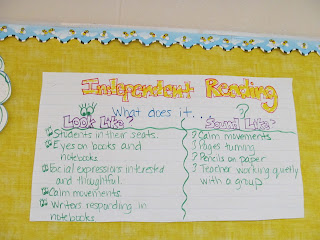 Independent Reading
What does it..
Look Like?
Students in their seats.
Eyes on books and
notebooks.
Facial expressions interested
and thoughtful.
Calm movements.
Writers responding in
notebooks.
Sound Like?
? Calm movements
? Pages turning
? Pencils on paper
? Teacher working quietly
with a group